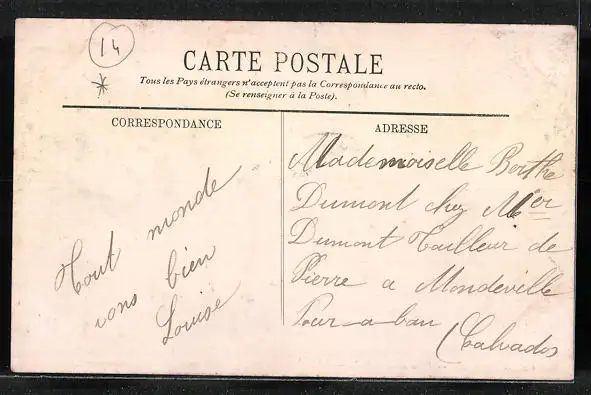 14
*
CARTE POSTALE
Tous les Pays étrangers n'acceptent pas la Correspondance au recto.
(Se renseigner à la Poste).
CORRESPONDANCE
ADRESSE
Tout monde
vons bien
Louise
Mademoiselle Berthe
Dumont chez Mer
Dumont Tailleur de
Pierre a Mondeville
Pour-a-ban
(Calvados